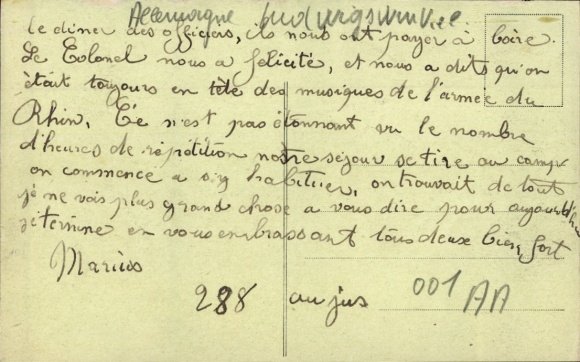 Allemagne Ludwigswinkel
le diner des officiers, ils nous ont payer à boire.
Le Colonel nous a félicité, et nous a dits qu'on
était toujours en tête des musiques de l'armée du
Rhin. Ce n'est pas étonnant vu le nombre
d'heures de répétition notre séjour se tire au camp
on commence a s'y habituer, on trouvait de tout
je ne vois plus grand chose a vous dire pour aujourd'hui
je termine en vous enbrassant tous deux bien fort
Marius
288 au jus 001 AA